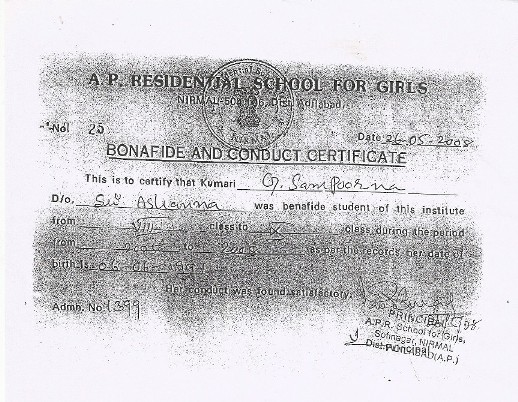 A.P. RESIDENTIAL SCHOOL FOR GIRLS
NIRMAL-504 Dist. Adilabad.
No 25
Date 26-05-2008
BONAFIDE AND CONDUCT CERTIFICATE
This is to certify that Kumari G. Sampoorna
D/o. Sri. Ashanna was benafide student of this institute
from VIII class to X class, during the period
from to 2008 as per the records her date of
birth is 06-06-199
Her conduct was found satisfactory.
Admn. No 1399
PRINCIPAL
A.P.R. School for Girls,
Sofinagar, NIRMAL
Principal